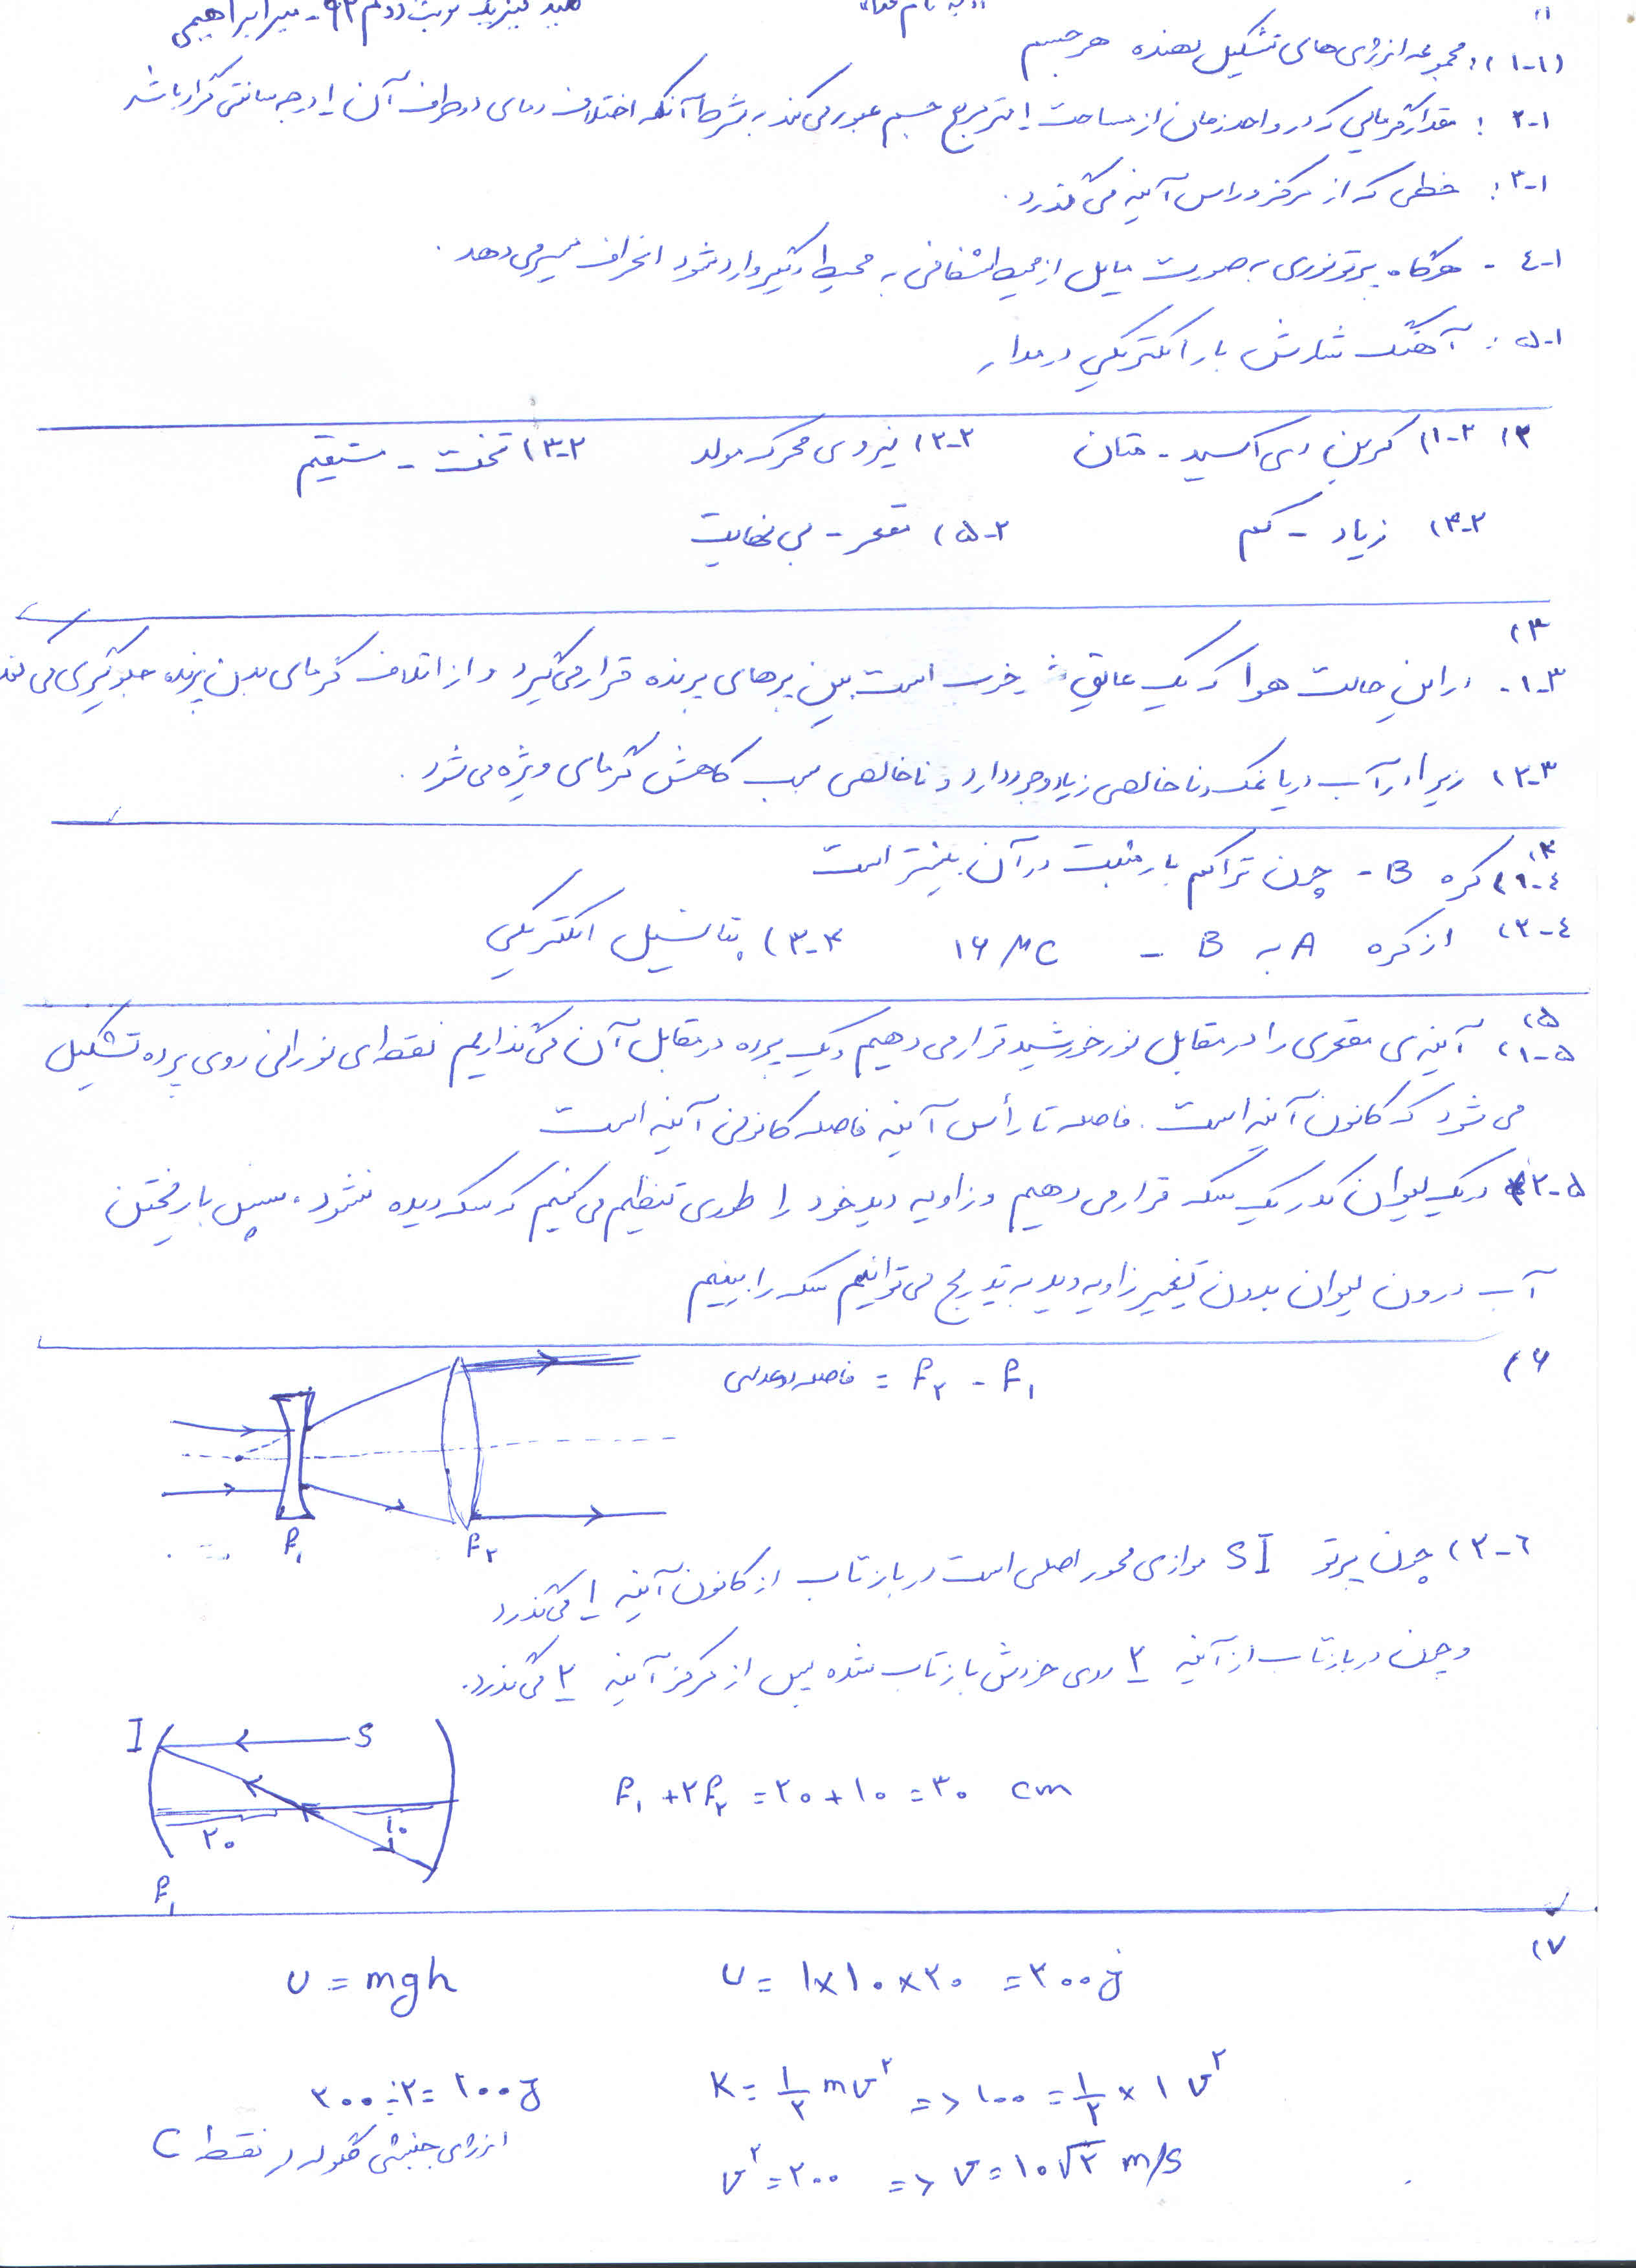 "به نام خدا"
کلید فیزیک نوبت دوم ۹۲ - میرابراهیمی
۱)
۱-۱): مجموعه انرژی های تشکیل دهنده هر جسم
۲-۱ : مقدار گرمایی که در واحد زمان از مساحت ۱ متر مربع جسم عبور می کند به شرط آنکه اختلاف دمای دو طرف آن ۱ درجه سانتی گراد باشد
۳-۱ : خطی که از مرکز و راس آینه می گذرد.
۴-۱ - هرگاه پرتو نوری به صورت مایل از محیط شفافی به محیط دیگر وارد شود انحراف مسیر می دهد.
۵-۱ : آهنگ شارش بار الکتریکی در مدار
۲) ۱-۲) کربن دی اکسید - متان ۲-۲) نیروی محرکه مولد ۳-۲) تخت - مستقیم
۴-۲) زیاد - کم ۵-۲) مقعر - بی نهایت
۳)
۱-۳- در این حالت هوا که یک عایق خوب است بین پرهای پرنده قرار می گیرد و از اتلاف گرمای بدن پرنده جلوگیری می کند
۲-۳) زیرا در آب دریا نمک و ناخالصی زیاد وجود دارد و ناخالصی سبب کاهش گرمای ویژه می شود.
۴)
۱-۴) کره B - چون تراکم بار مثبت در آن بیشتر است
۲-۴) از کره A به B - ۱۶ μC ۳-۴) پتانسیل الکتریکی
۵)
۱-۵) آینه ی مقعری را در مقابل نور خورشید قرار می دهیم و یک پرده در مقابل آن می گذاریم نقطه ای نورانی روی پرده تشکیل
می شود که کانون آینه است. فاصله تا رأس آینه فاصله کانونی آینه است
۲-۵ در یک لیوان کدر یک سکه قرار می دهیم و زاویه دید خود را طوری تنظیم می کنیم که سکه دیده نشود، سپس با ریختن
آب درون لیوان بدون تغییر زاویه دید به تدریج می توانیم سکه را ببینیم
۶)
فاصله دو عدسی = f۲ - f۱
f۱ f۲
۲-۶) چون پرتو SI موازی محور اصلی است در بازتاب از کانون آینه ۱ می گذرد
و چون در بازتاب از آینه ۲ روی خودش بازتاب شده پس از مرکز آینه ۲ می گذرد.
I S
f۱ + ۲f۲ = ۲۰ + ۱۰ = ۳۰ cm
۲۰ ۱۰
f۱
۷)
U = mgh U = ۱×۱۰×۲۰ = ۲۰۰ j
۲۰۰ ÷ ۲ = ۱۰۰ j K = ۱/۲ mv² => ۱۰۰ = ۱/۲ × ۱ v²
انرژی جنبشی گلوله در نقطه C
v² = ۲۰۰ => v = ۱۰√۲ m/s